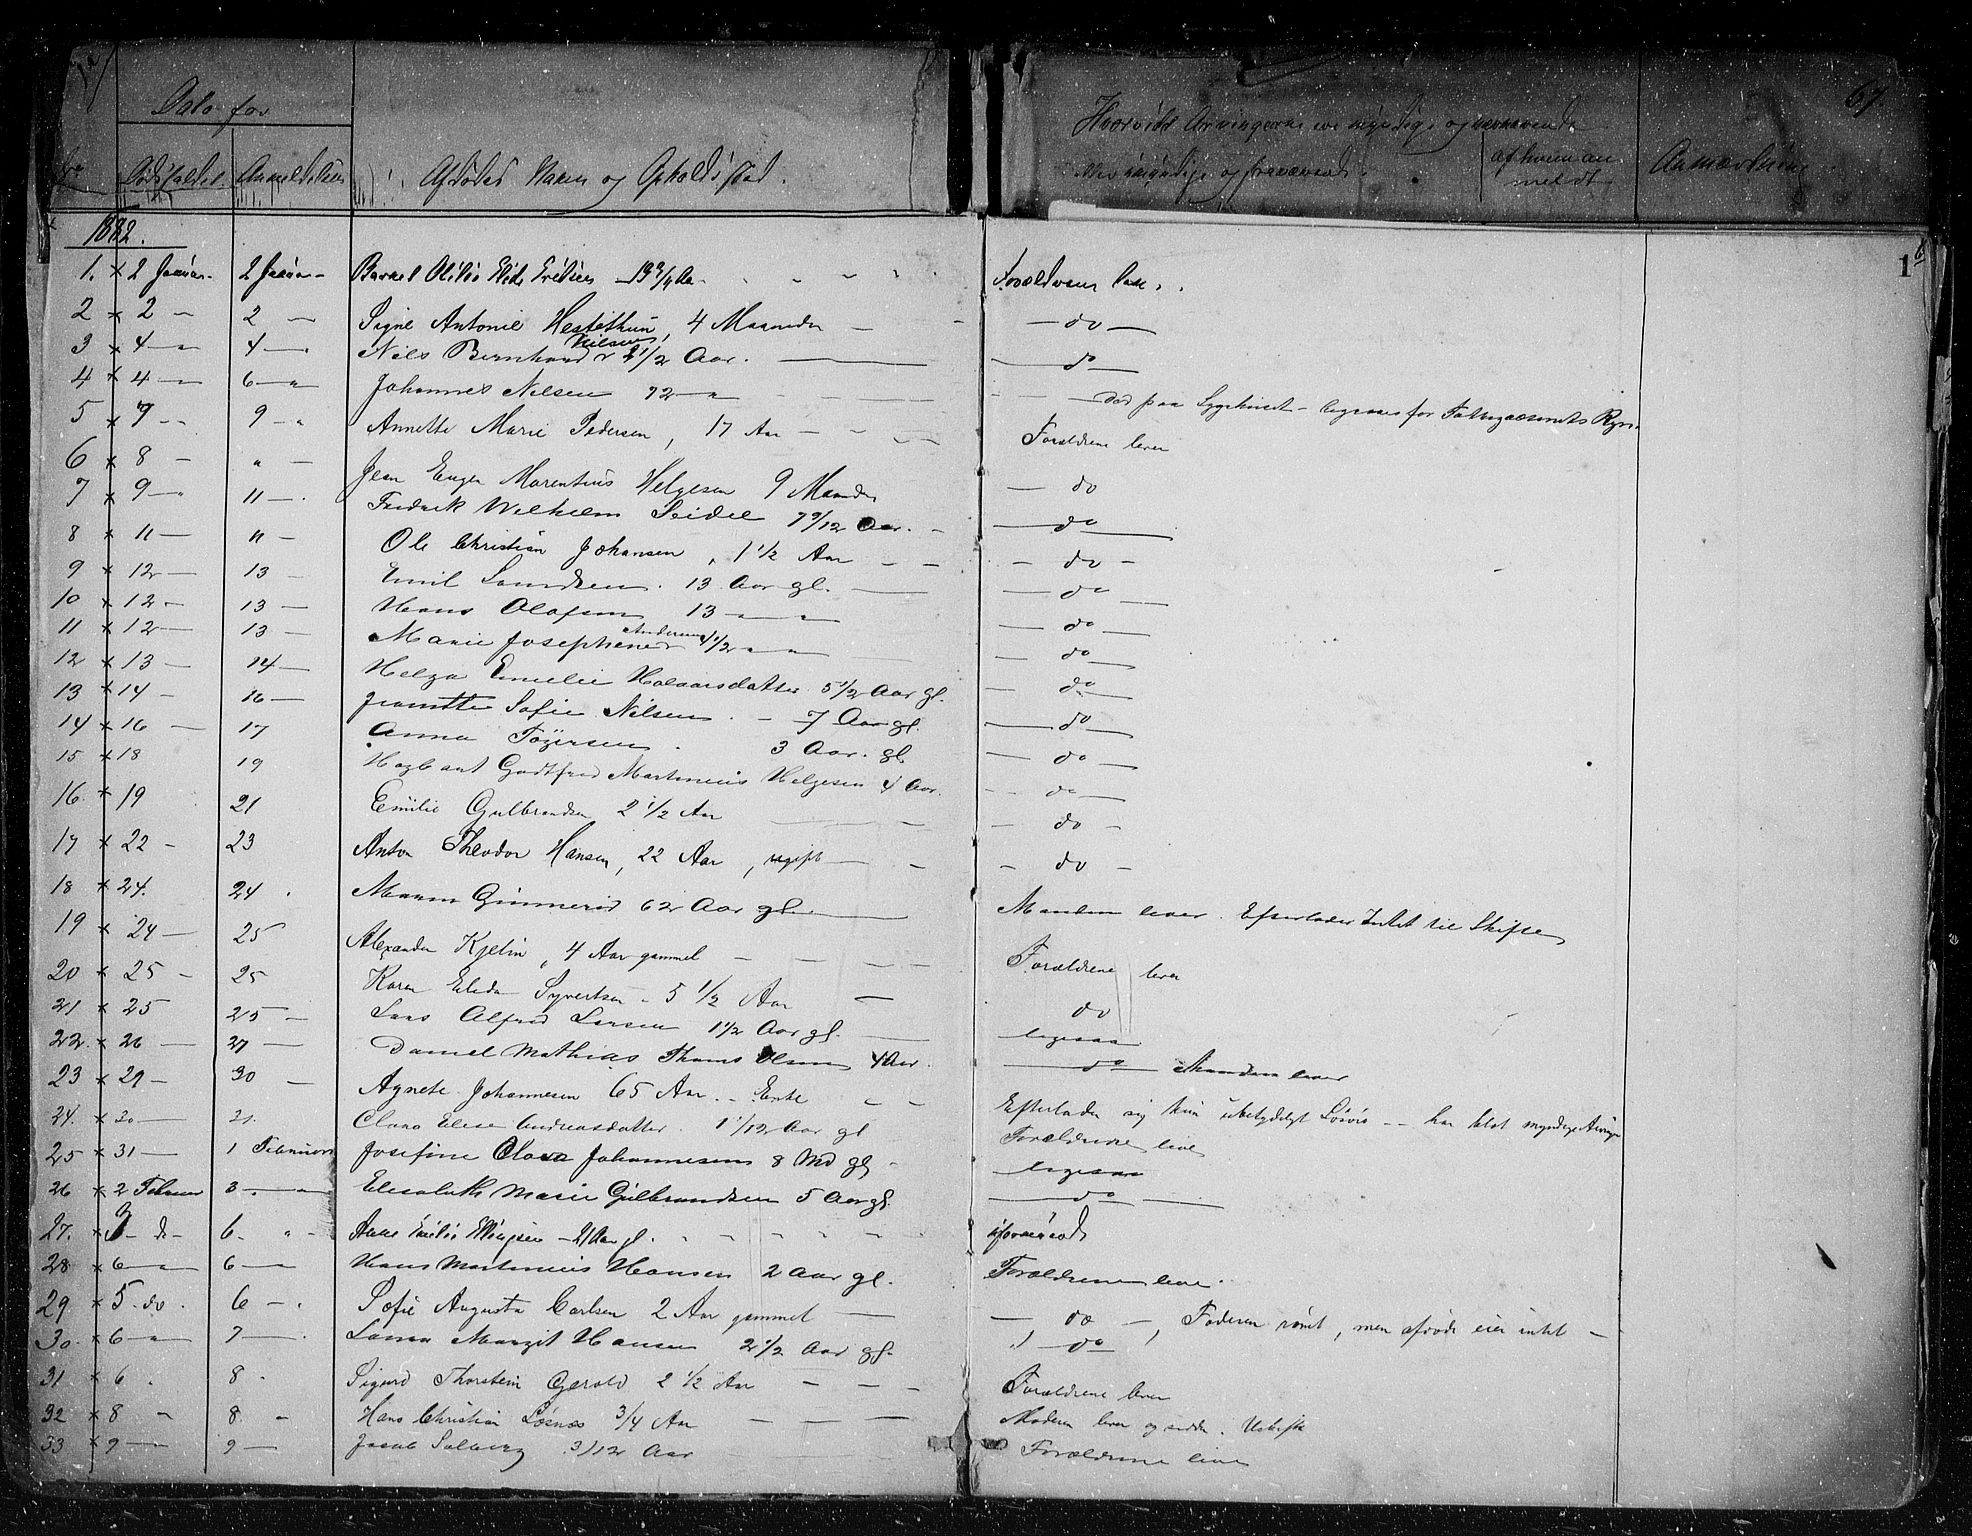 67.
Dato for
Hvorvidt Arvingerne ere myndige og nærværende
No Dødsfaldet. Anmeldelsen Afdødes Navn og Opholdssted.
eller umyndige og fraværende. af hvem anmeldt Anmærkning
1882.
1. × 2 Januar 2 Januar Barnet Elida Eriksen Forældrene leve. 1
2 × 2 — 2 — Signe Antonie Hestethun, 4 Maaneder — do —
3 × 4 — 4 — Nils Bernhard Nilsen 1/2 Aar. — do —
4 × 4 — 6 — Johannes Nilsen 72 — Død paa Sygehuset – begraves for Fattigvæsenets Regn.
5 × 7 — 9 — Annette Marie Pedersen, 17 Aar — Forældrene lever
6 × 8 — " — Jean Eugen Marentius Helgesen 9 Maander — do
7 × 9 — 11 — Fredrik Wilhelm Seidel 7 9/12 Aar. — do —
8 × 11 — 11 — Ole Christian Johansen, 1 1/2 Aar — do —
9 × 12 — 13 — Emil Lamdsen. 13 Aar gl. — do —
10 × 12 — 13 — Hans Olafsen 13 — " — do —
11 × 12 — 13 — Marie Josephine Andersen 1/2 — " — do —
12 × 13 — 14 — Helga Emelie Halvorsdatter 5 1/2 Aar gl. — do —
13 × 14 — 16 — Jeanette Sofie Nilsen. — 7 Aar gl. — do —
14 × 16 — 17 Anna Tøgersen. 3 Aar. gl. — do —
15 × 18 19 Hagbart Godtfred Martinius Helgesen 4 Aar. — do —
16. × 19 21 Emilie Gulbrandsen 2 1/2 Aar — do —
17 × 22 — 23 Anton Theodor Hansen, 22 Aar, ugift — do —
18 × 24. 24. Maren Gimmerød 62 Aar gl. — Manden lever. Efterlader Intet til Skifte
19 × 24 — 25 Alexander Kjelin, 4 Aar gammel — Forældrene lever
20 × 25 — 25 Karen Elida Syvertsen — 5 1/2 Aar — do
21 × 25 25 — Lars Alfred Larsen 1 1/2 Aar gl. — ligesaa
22. × 26 — 27 — Daniel Mathias Thoms Olsen 4 Aar. — do — Manden lever
23 × 29 — 30 — Agnete Johannesen 65 Aar. — Enke — Efterlader sig kun ubetydeligt Løsøre — har blot myndige Arvinger
24. × 30 — 31. Clara Elise Andreasdatter. 1 1/12 Aar gl Forældrene leve
25 × 31 — 1 Februar Josefine Clara Johannesen 8 Md gl — ligesaa
26 × 2 Februar 3. — " Elisabeth Marie Gulbrandsen 5 Aar gl. — do —
27. × 3 — do — 6 — " — Anne Emilie Ellingsen — 21 Aar gl.
28 × 6 — " 6 — " Hans Martinius Hansen 2 Aar gl. Forældrene leve.
29 × 5. do. 6 — . Sofie Augusta Carlsen 2 Aar gammel — — do —, Faderen rømt, men afdøde eier intet —
30. × 6 — " 7 — . Laura Margit Hansen 2 1/2 Aar gl. — do —
31 × 6. 8. Sigurd Thorstein Gerold 2 1/2 Aar — — — Forældrene lever
32 × 8 " 8 " Hans Christian Løsnæs 3/4 Aar — — — Moderen lever og sidder i Uskifte
33 × 9 — 9 — Jacob Solberg 3/12 Aar Forældrene leve